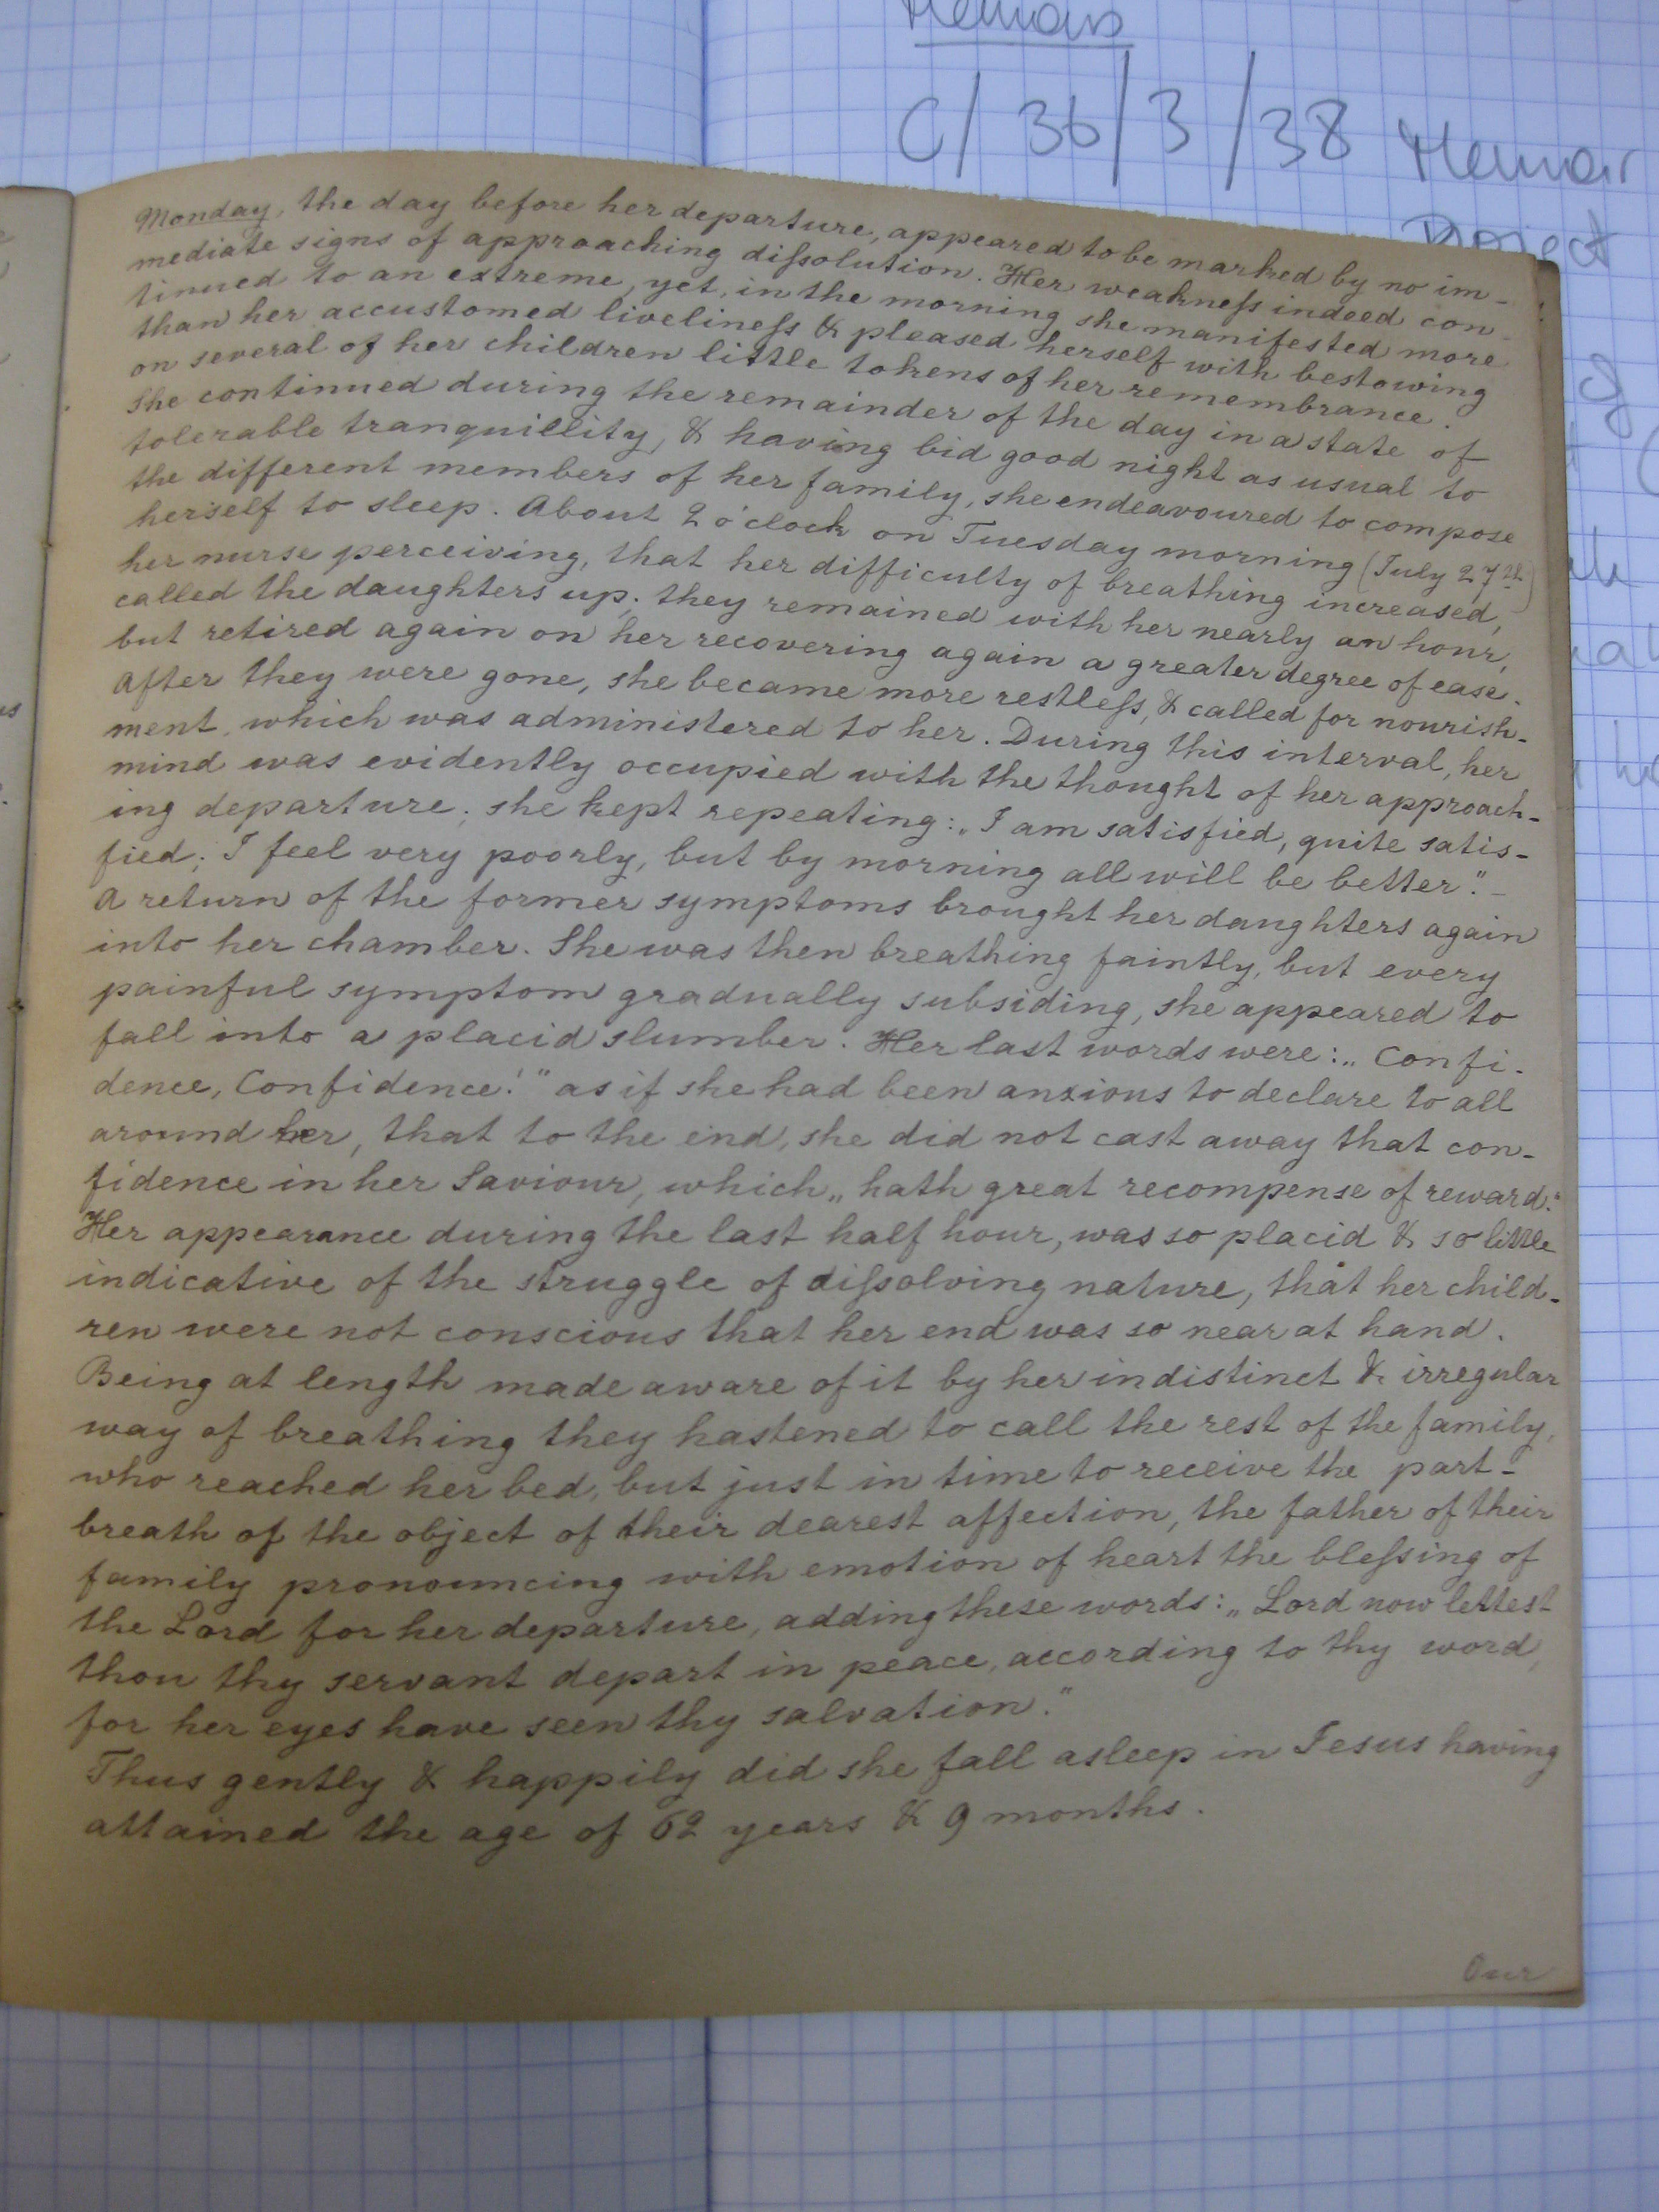 Memoirs
C/36/3/38 Memoir
Project
Monday, the day before her departure, appeared to be marked by no im-
mediate signs of approaching dissolution. Her weakness indeed con-
tinued to an extreme, yet, in the morning she manifested more
than her accustomed liveliness & pleased herself with bestowing
on several of her children little tokens of her remembrance.
She continued during the remainder of the day in a state of
tolerable tranquillity, & having bid good night as usual to
the different members of her family, she endeavoured to compose
herself to sleep. About 2 o'clock on Tuesday morning (July 27th)
her nurse perceiving, that her difficulty of breathing increased,
called the daughters up; they remained with her nearly an hour,
but retired again on her recovering again a greater degree of ease.
After they were gone, she became more restless, & called for nourish-
ment, which was administered to her. During this interval, her
mind was evidently occupied with the thought of her approach-
ing departure; she kept repeating: „I am satisfied, quite satis-
fied; I feel very poorly, but by morning all will be better." -
A return of the former symptoms brought her daughters again
into her chamber. She was then breathing faintly, but every
painful symptom gradually subsiding, she appeared to
fall into a placid slumber. Her last words were: „Confi-
dence, Confidence!" as if she had been anxious to declare to all
around her, that to the end, she did not cast away that con-
fidence in her Saviour, which „hath great recompense of reward."
Her appearance during the last half hour, was so placid & so little
indicative of the struggle of dissolving nature, that her child-
ren were not conscious that her end was so near at hand.
Being at length made aware of it by her indistinct & irregular
way of breathing they hastened to call the rest of the family,
who reached her bed, but just in time to receive the part-
breath of the object of their dearest affection, the father of their
family pronouncing with emotion of heart the blessing of
the Lord for her departure, adding these words: „Lord now lettest
thou thy servant depart in peace, according to thy word,
for her eyes have seen thy salvation."
Thus gently & happily did she fall asleep in Jesus having
attained the age of 62 years & 9 months.
Our